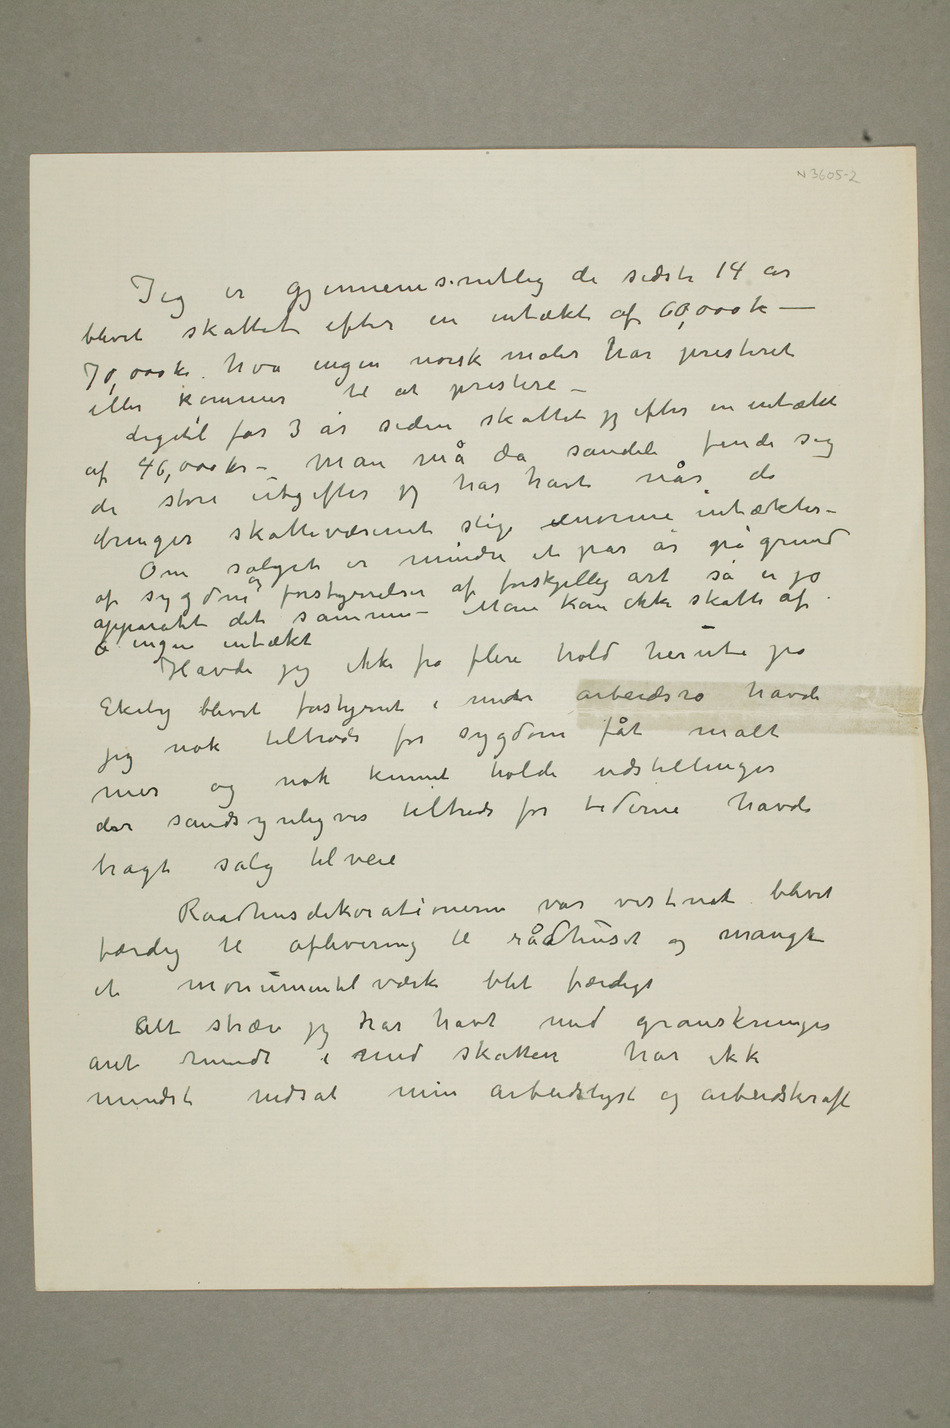 N 3605-2
Jeg er gjennemsnitlig de sidste 14 år
blevet skattet efter en intækt af 60,000 kr —
70,000 kr. hva ingen norsk maler har presteret
eller kommer til at prestere –
digetil for 3 år siden skattet jg efter en intækt
af 46,000 kr – Man må da sandeli finde sig
de store utgifter jg har havt når de
bringer skattevæsenet slige enorme intækter –
Om salget er mindre et par år på grund
af sygdom og forstyrrelser af forskjellig art så er jo
apparatet det samme – Man kan ikke skatte af
ingen intækt
Havde jeg ikke fra flere hold herute på
Ekely blevet forstyrret i min arbeidsro havde
jeg nok tiltrods for sygdom fåt malt
mer og nok kunnet holde udstillinger
der sandsynligvis tiltrods for tiderne havde
bragt salg tilveie
Raadhusdekorationerne var vistnok blevet
færdig til aflevering til rådhuset og mangt
et monumentel værk blet færdigt
Alt stræv jg har havt med granskninger
året rundt i med skatten har ikke
mindst nedsat min arbeidslyst og arbeidskraft